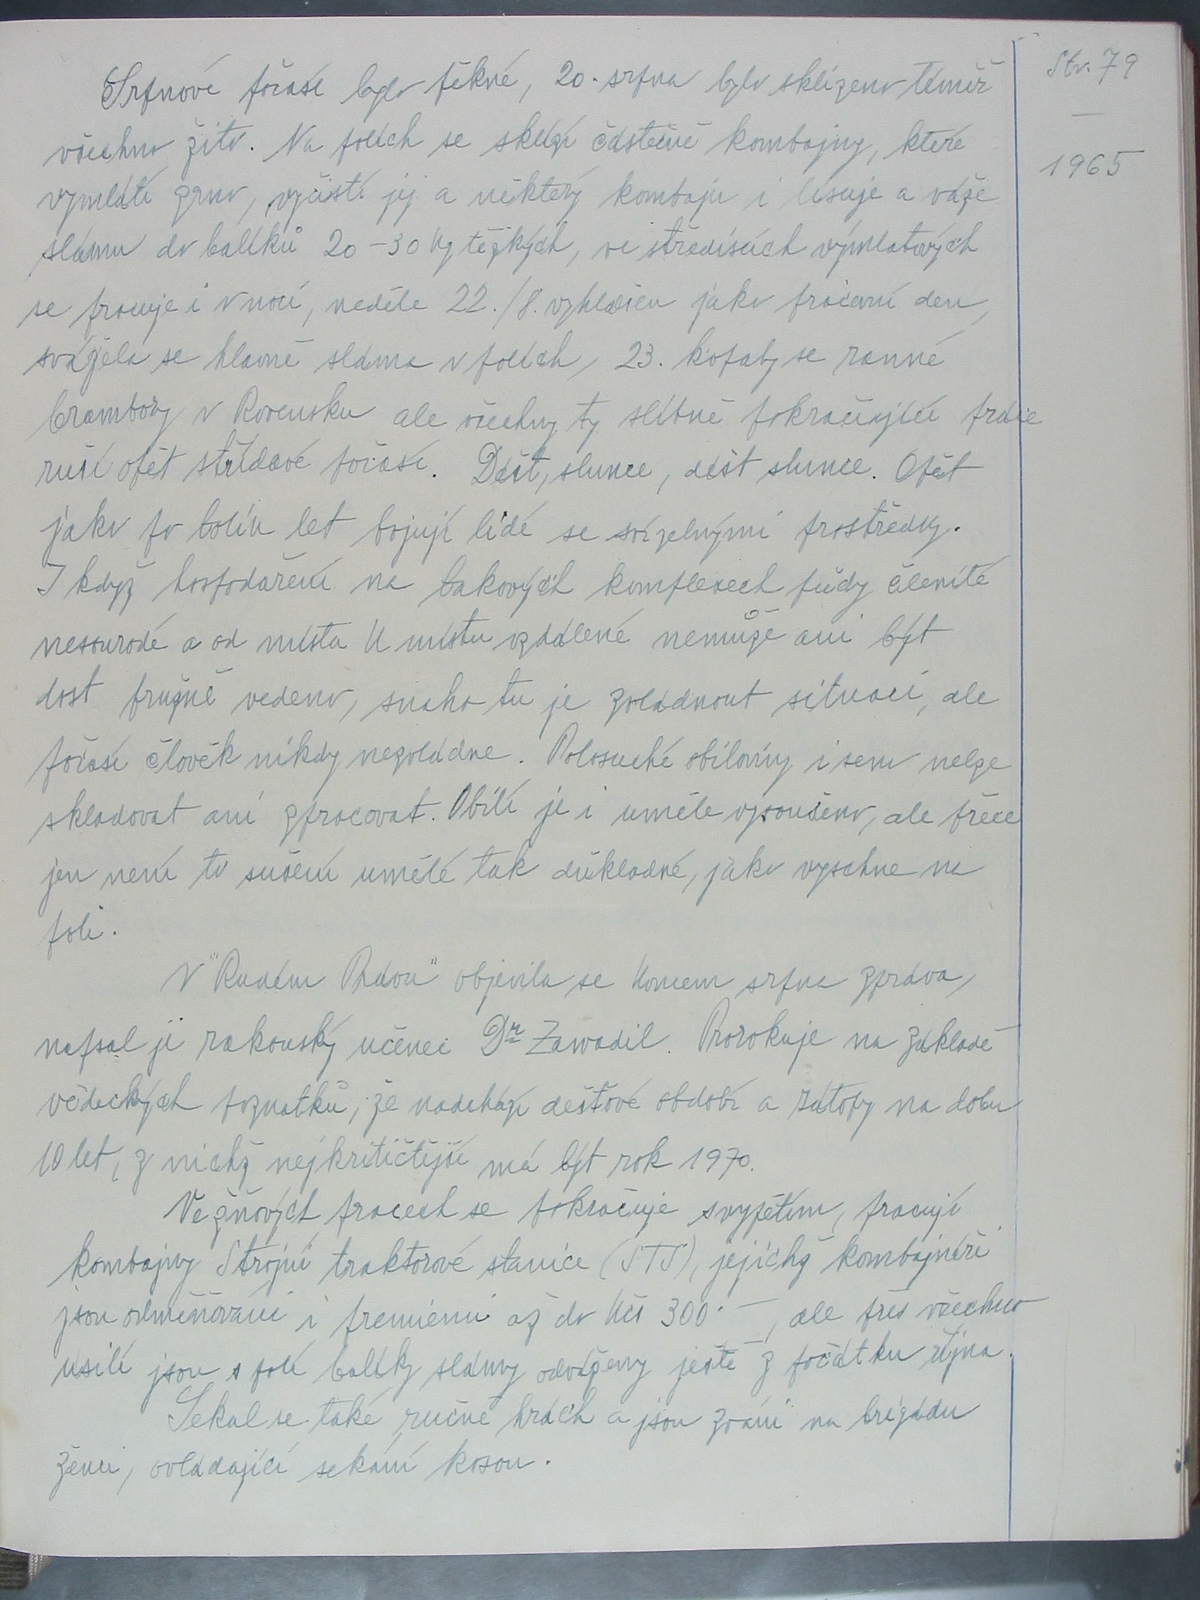 Str. 79
—
1965
Srpnové počasí bylo pěkné, 20. srpna bylo sklizeno téměř
všechno žito. Na polích se sklízí částečně kombajny, které
vymlátí zrno, vyčistí jej a některý kombajn i lisuje a váže
slámu do balíků 20 – 30 kg těžkých, ve střediscích výmlatových
se pracuje i v noci, neděle 22./8. vyhlášen jako pracovní den,
svážela se hlavně sláma v polích, 23. kopaly se ranné
brambory v Rovensku ale všechny ty slibně pokračující práce
ruší opět střídavé počasí. Déšt, slunce, déšt slunce. Opět
jako po kolik let bojují lidé se svízelnými prostředky.
I když hospodaření na takových komplexech půdy členité
nesourodé a od místa k místu vzdálené nemůže ani být
dost pružně vedeno, snaha tu je zvládnout situaci, ale
počasí člověk nikdy nezvládne. Polosuché obiloviny i sem nelze
skladovat ani zpracovat. Obilí je i uměle vysoušeno, ale přece
jen není to sušení umělé tak důkladné, jako vyschne na
poli.
V "Rudém Právu" objevila se koncem srpna zpráva,
napsal ji rakouský učenec Dr Zawadil. Prorokuje na základě
vědeckých poznatků, že nadchází dešťové období a zátopy na dobu
10 let, z nichž nejkritičtější má být rok 1970.
Ve žňových pracech se pokračuje s vypětím, pracují
kombajny Strojní traktorové stanice (STS), jejichž kombajnéři
jsou odměňováni i premiemi až do Kčs 300·—, ale přes všechno
úsilí jsou s polí balíky slámy odváženy ještě z počátku října.
Sekal se také ručně hrách a jsou zváni na brigádu
ženci, ovládající sekání kosou.